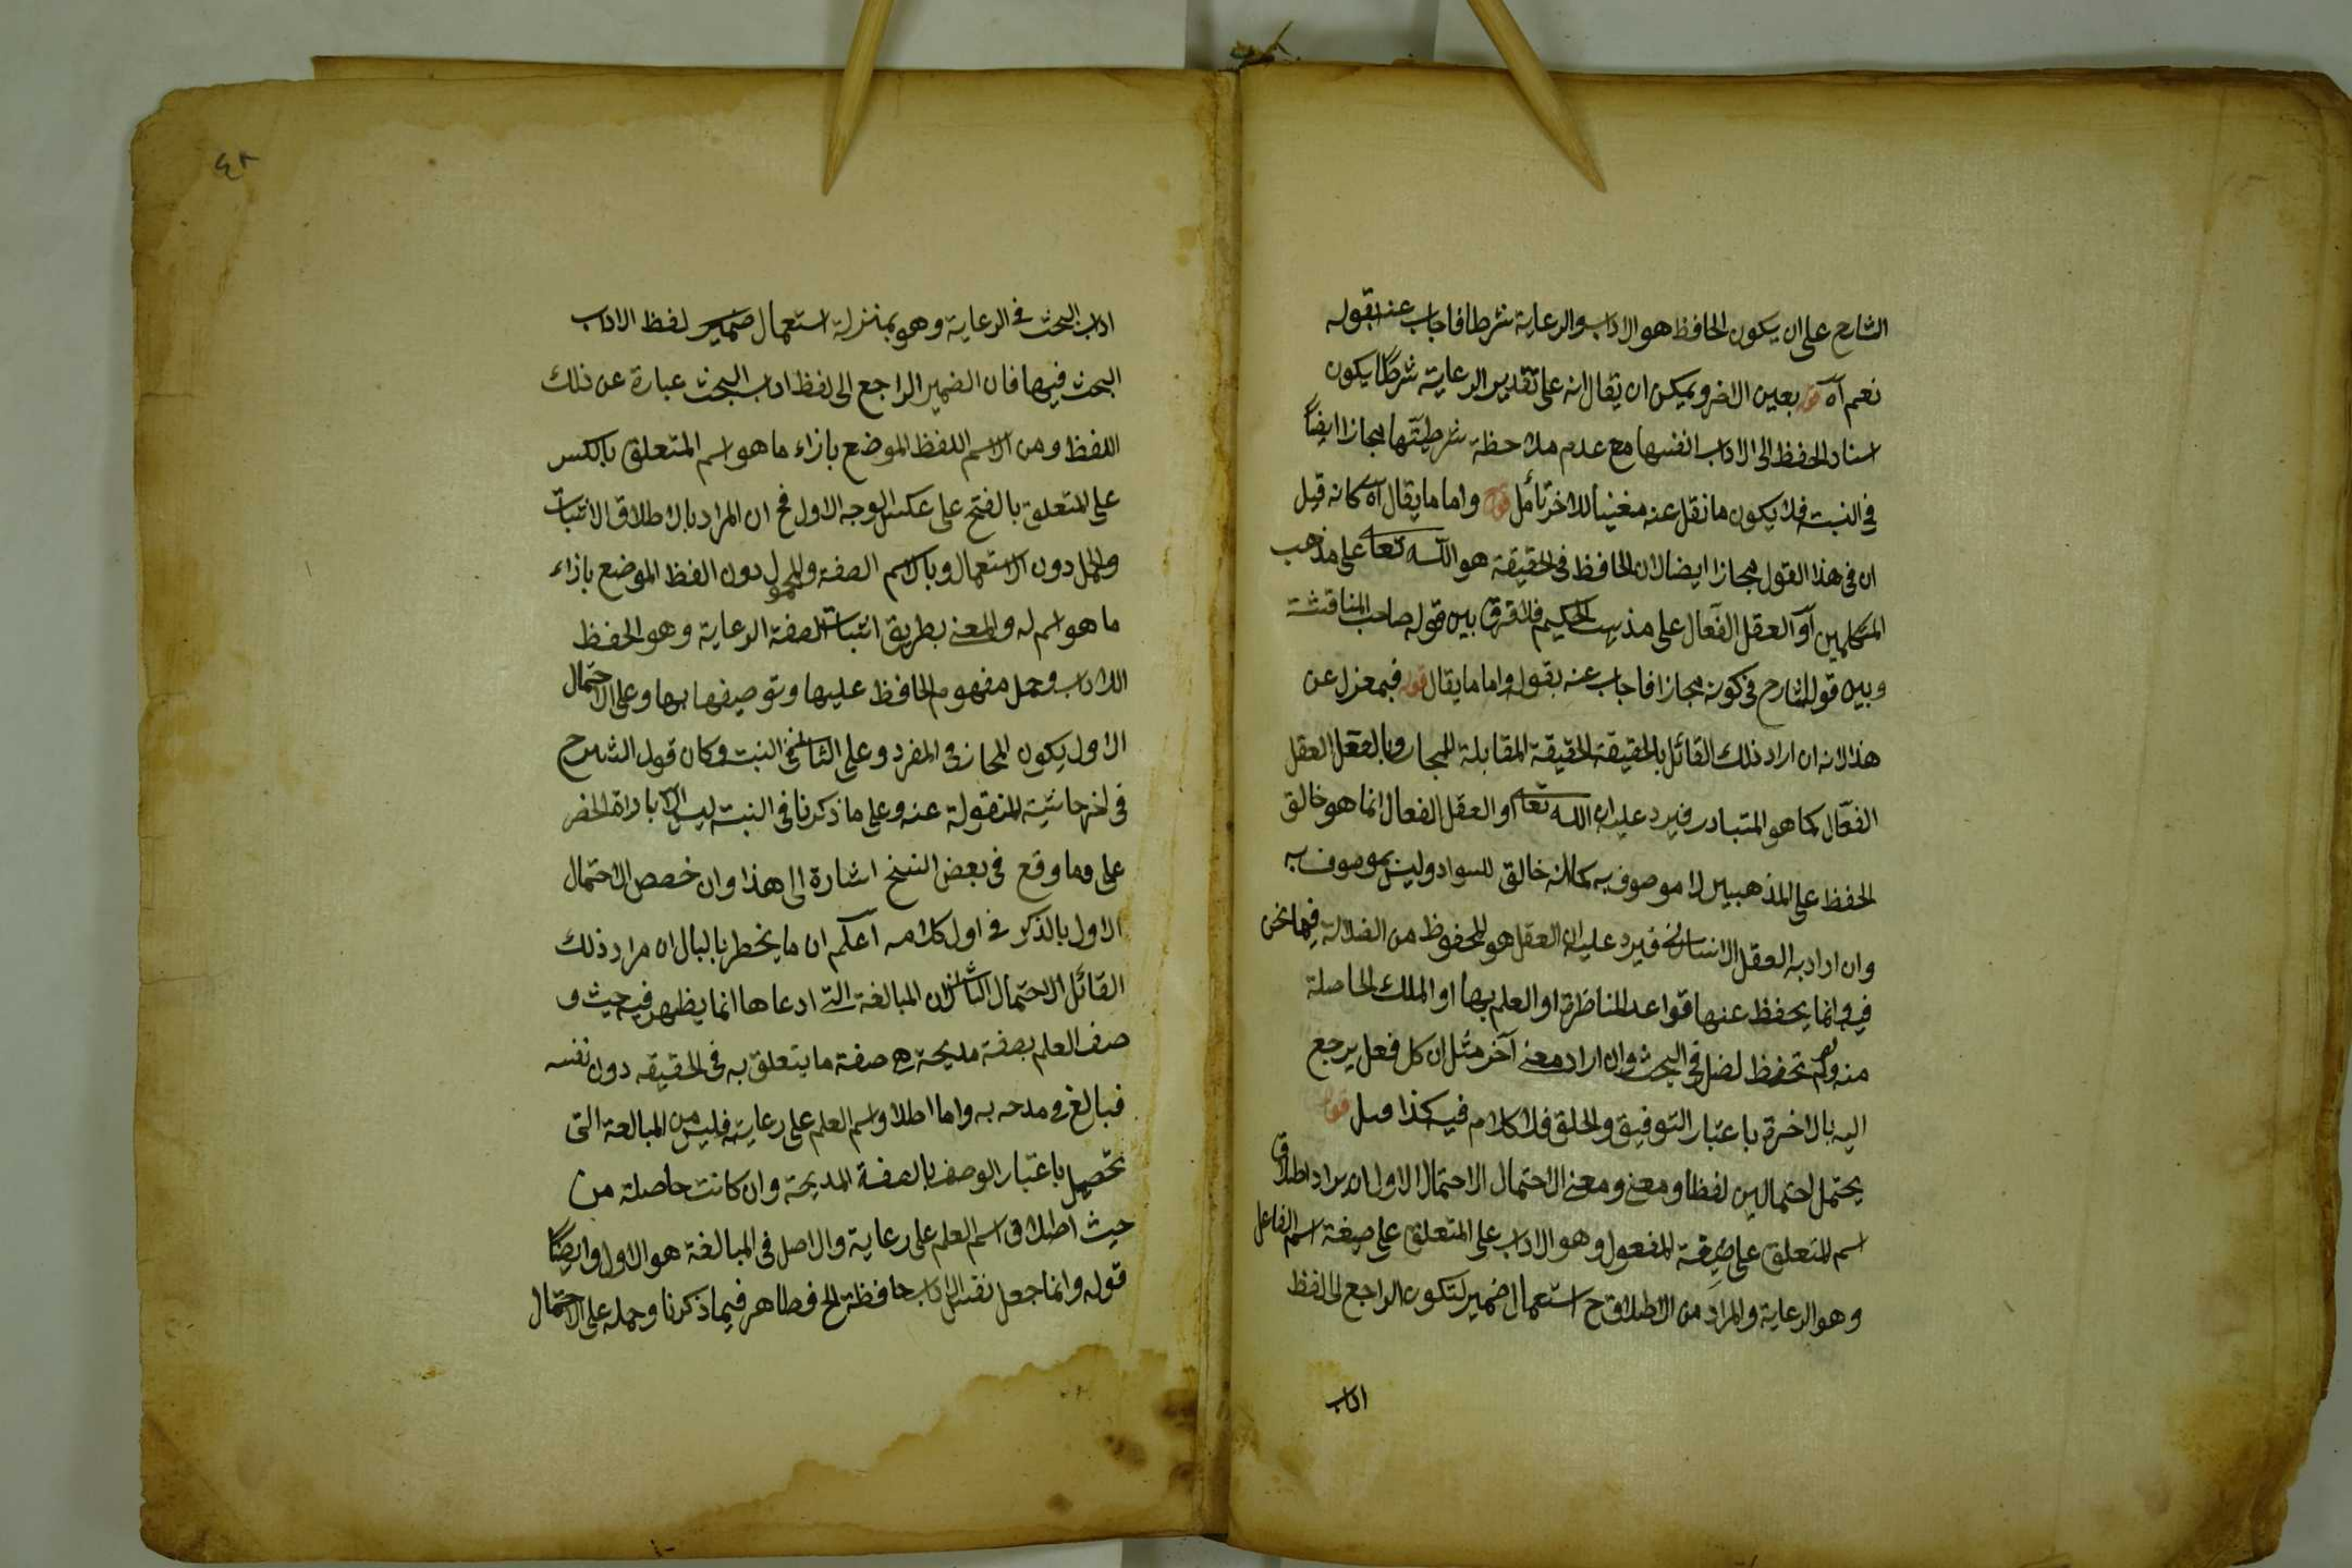 الشارح على ان يكون الحافظ هو الاداب والرعاية شرطا فاجاب عنه بقوله
نعم آه قوله بعين الاخر ويمكن ان يقال انه على تقدير الرعاية شرطا يكون
اسناد الحفظ الى الاداب انفسها مع عدم ملاحظة شرطيتها مجازا ايضا
في النسبة فلا يكون ما نقل عنه مغنيا للاخر تأمل قوله واما ما يقال آه كانه قيل
ان في هذا القول مجازا ايضا لان الحافظ في الحقيقة هو الله تعالى على مذهب
المتكلمين او العقل الفعال على مذهب الحكيم فلا فرق بين قوله صاحب المناقشة
وبين قول الشارح في كونه مجازا فاجاب عنه بقوله واما ما يقال قوله فبمعزل عن
هذا لانه ان اراد ذلك القائل بالحقيقة الحقيقة المقابلة للمجاز وبالعقل العقل
الفعال كما هو المتبادر فيرد عليه ان الله تعالى او العقل الفعال انما هو خالق
الحفظ على المذهبين لا موصوف به كما انه خالق للسواد وليس بموصوف به
وان اراد به العقل الانساني فيرد عليه ان العقل هو المحفوظ من الضلالة فيما نحن
فيه وانما يحفظ عنها قواعد المناظرة او العلم بها او الملكة الحاصلة
منه تحفظ في البحث وان اراد معنى آخر مثل ان كل فعل يرجع
اليه بالاخرة باعتبار التوفيق والخلق فلا كلام فيه كذا قيل قوله
يحتمل احتمالين لفظا ومعنى ومعنى الاحتمال الاحتمال الاول ان يراد اطلاق
اسم المتعلق على صيغة المفعول وهو الاداب على المتعلق على صيغة اسم الفاعل
وهو الرعاية والمراد من الاطلاق ح استعمال ضمير لتكون الراجع الى لفظ
اداب
٤٢
اداب البحث في الرعاية وهو بمنزلة استعمال ضمير لفظ الاداب
البحث فيها فان الضمير الراجع الى لفظ اداب البحث عبارة عن ذلك
اللفظ ومن الاسم اللفظ الموضع بازاء ما هو اسم المتعلق بالكسر
على المتعلق بالفتح على عكس الوجه الاول فح ان المراد بالاطلاق الاثبات
والحمل دون الاستعمال وبالاسم الصفة والمحمول دون الفظ الموضع بازاء
ما هو اسم له والمعنى بطريق اثبات الصفة الرعاية وهو الحفظ
للاداب وحمل مفهوم الحافظ عليها وتوصيفها بها وعلى الاحتمال
الاول يكون المجاز في المفرد وعلى الثاني في النسبة وكان قول الشرح
في اخر حاشيته المنقولة عنه وعلى ما ذكرنا في النسبة ليس الا باداة الحصر
على وما وقع في بعض النسخ اشارة الى هذا وان خصص الاحتمال
الاول بالذكر في اول كلامه اعلم ان ما يخطر بالبال ان مراد ذلك
القائل الاحتمال الثاني لان المبالغة التي ادعاها انما يظهر فيه حيث و
صف العلم بصفة مديحة هي صفة ما يتعلق به في الحقيقه دون نفسه
فبالغ في مدحه به واما اطلاق اسم العلم على رعايته فليس من المبالغة التي
تحصل باعتبار الوصف بالصفة المديحة وان كانت حاصلة من
حيث اطلاق اسم العلم على رعاية والاصل في المبالغة هو الاول وايضا
قوله وانما جعل نفس الاداب حافظة الخ ظاهر فيما ذكرنا وحمله على الاحتمال